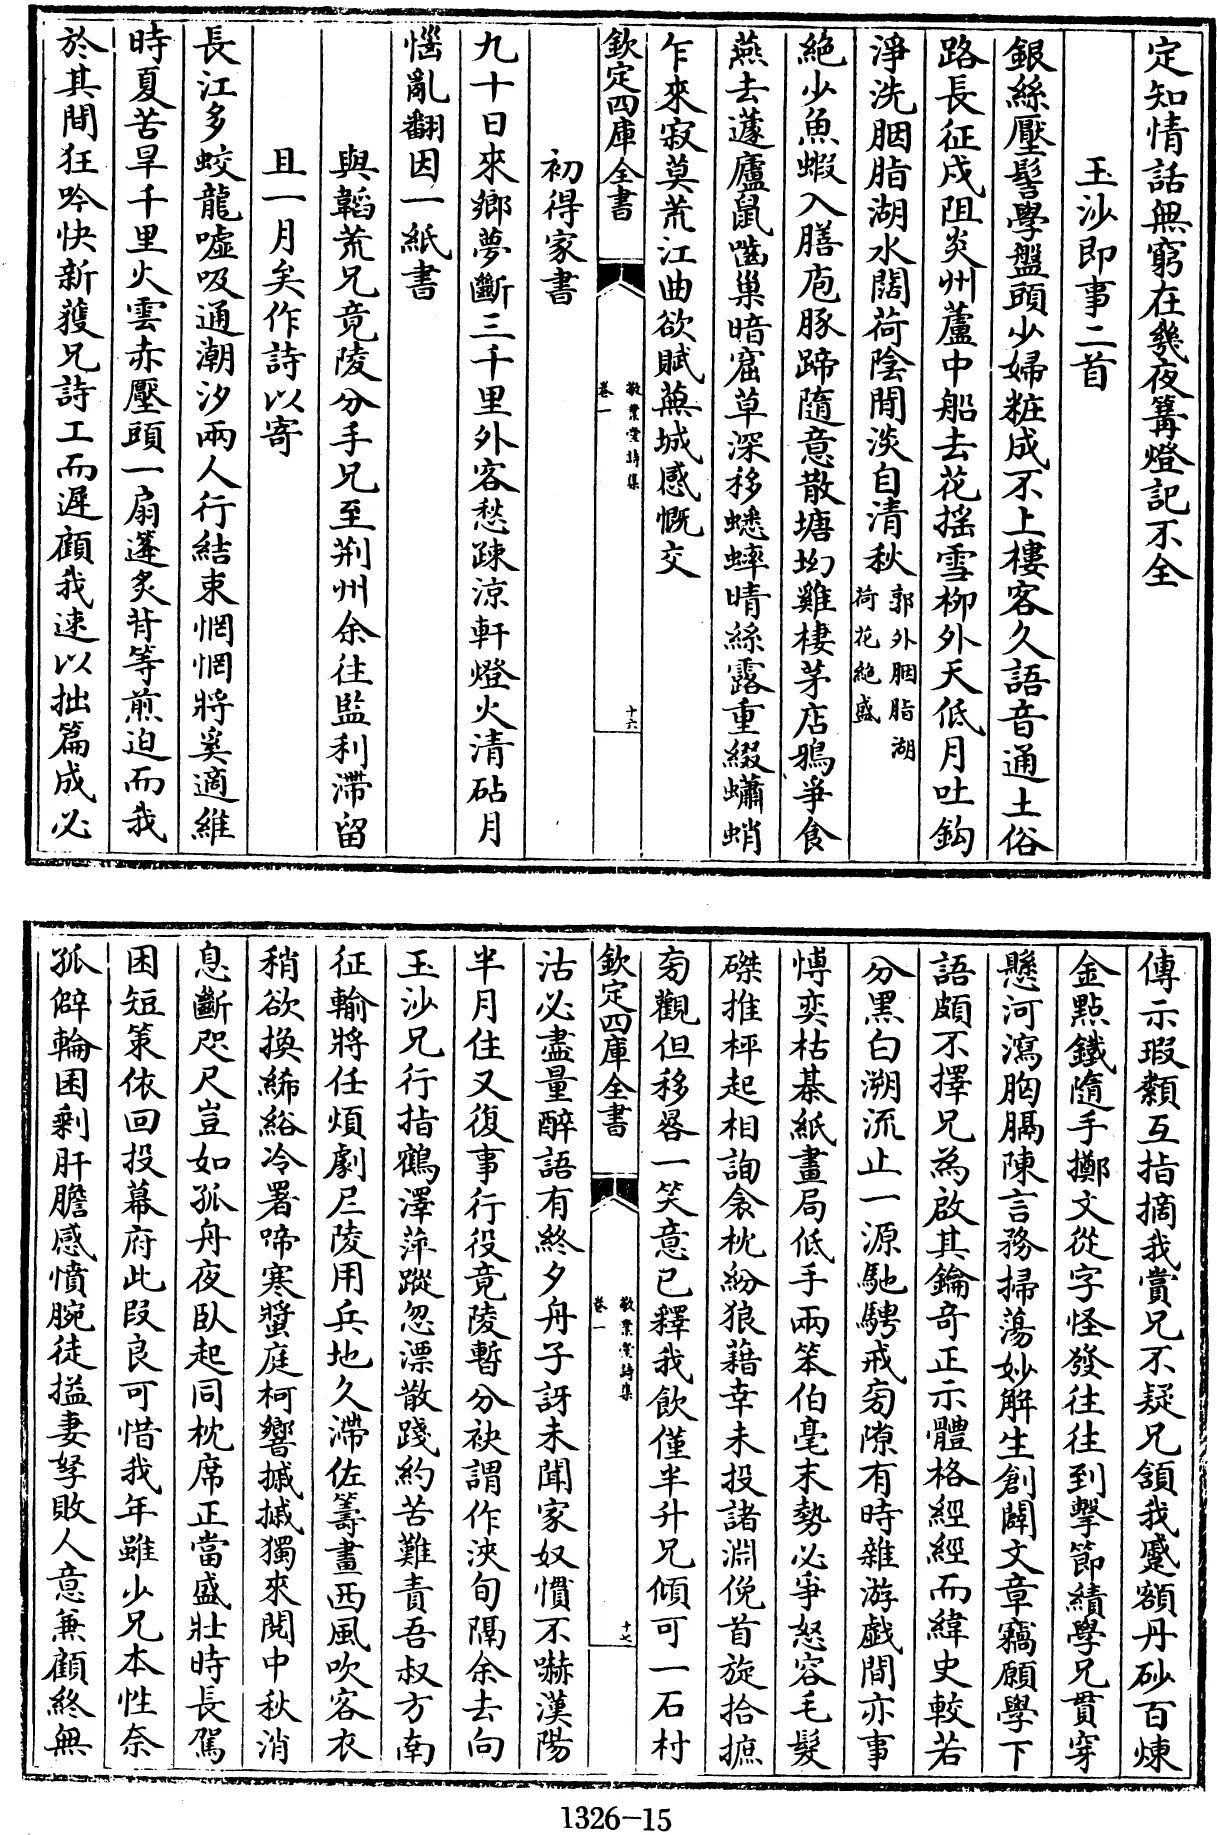 定知情話無窮在幾夜篝燈記不全
玉沙即事二首
銀絲壓髻學盤頭少婦粧成不上樓客久語音通土俗
路長征戍阻炎州蘆中船去花揺雪柳外天低月吐鈎
淨洗胭脂湖水闊荷陰閒淡自清秋郭外胭脂湖荷花絶盛
絶少魚蝦入膳庖豚蹄隨意散塘坳雞棲茅店鴉爭食
燕去蘧廬鼠嚙巢暗窟草深移蟋蟀晴絲露重綴蠨蛸
乍來寂莫荒江曲欲賦蕪城感慨交
欽定四庫全書
敬業堂詩集
卷一
十六
初得家書
九十日來鄉夢斷三千里外客愁踈涼軒燈火清砧月
惱亂翻因一紙書
與韜荒兄竟陵分手兄至荆州余往監利滯留
且一月矣作詩以寄
長江多蛟龍嘘吸通潮汐兩人行結束惘惘將奚適維
時夏苦旱千里火雲赤壓頭一扇篷炙背等煎迫而我
於其間狂吟快新獲兄詩工而遲顧我速以拙篇成必
傳示瑕纇互指摘我賞兄不疑兄頷我蹙額丹砂百煉
金點鐵隨手擲文從字怪發往往到擊節績學兄貫穿
懸河瀉胸膈陳言務掃蕩妙解生創闢文章竊願學下
語頗不擇兄為啟其鑰奇正示體格經經而緯史較若
分黑白溯流止一源馳騁戒旁隙有時雜游戲間亦事
愽奕枯棊紙畫局低手兩笨伯毫末勢必爭怒容毛髮
磔推枰起相詢衾枕紛狼藉幸未投諸淵俛首旋拾摭
旁觀但移晷一笑意已釋我飲僅半升兄傾可一石村
欽定四庫全書
敬業堂詩集
卷一
十七
沽必盡量醉語有終夕舟子訝未聞家奴慣不嚇漢陽
半月住又復事行役竟陵暫分袂謂作浹旬隔余去向
玉沙兄行指鶴澤萍蹤忽漂散踐約苦難責吾叔方南
征輸將任煩劇巴陵用兵地久滯佐籌畫西風吹客衣
稍欲換絺綌冷署啼寒螿庭柯響摵摵獨來閱中秋消
息斷咫尺豈如孤舟夜臥起同枕席正當盛壯時長駕
困短策依回投幕府此叚良可惜我年雖少兄本性奈
孤僻輪囷剩肝膽感憤腕徒搤妻孥敗人意兼顧終無
1326-15